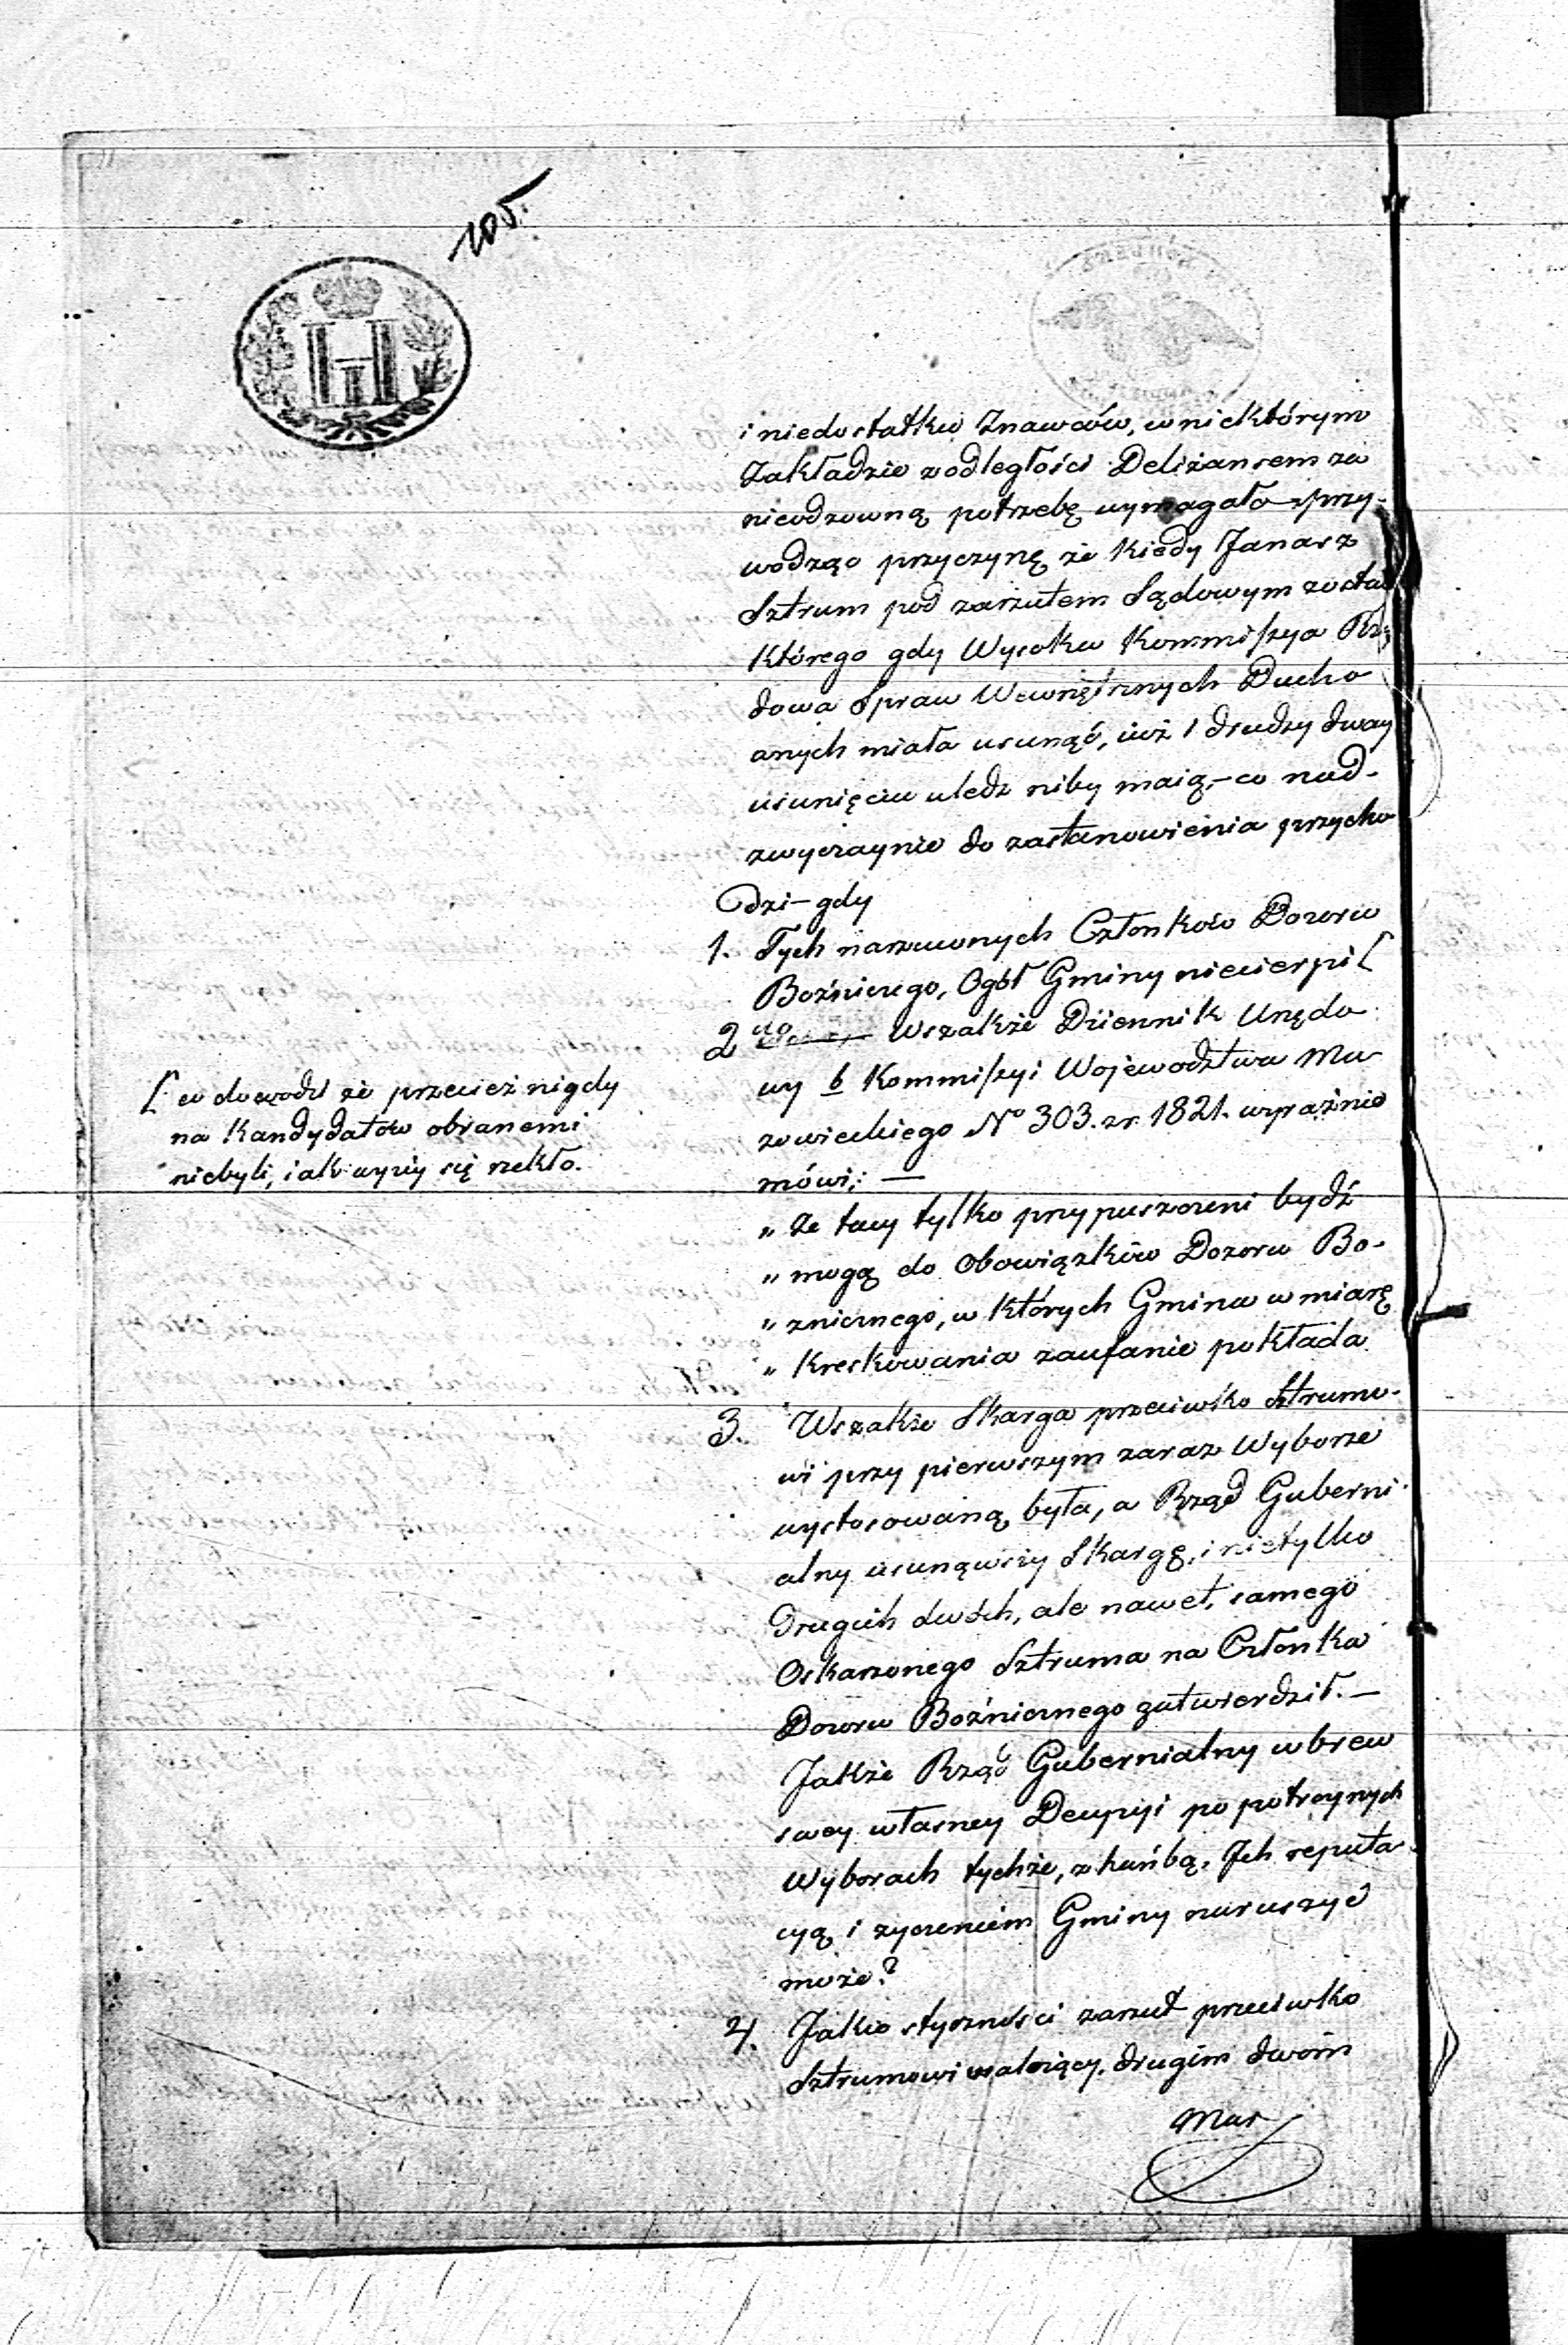 105.
i niedostatku Znawców, w niektórym
Zakładzie z odległości Deliżansem za
nieodzowną potrzebę wymagało przy-
wodząc przyczynę że kiedy Janasz
Sztrum pod zarzutem Sądowym został
którego gdy Wysoka Kommissya Rzą
dowa Spraw Wewnętrznych Ducho
wnych miała usunąć, iuż i drudzy dway
usunięciu uledz niby maią,– co nad-
zwyczaynie do zastanowienia przycho
dzi – gdy
1. Tych narzuconych Członków Dozoru
Bożniczego, Ogół Gminy niecierpi [
2do Wszakże Dziennik Urzędo
wy b Kommissyi Województwa Ma
zowieckiego No 303. zr. 1821. wyraźnie
mówi: —
„ Ze tacy tylko przypuszczeni bydź
„ mogą do Obowiązków Dozoru Bo-
„ znicznego, w których Gmina w miarę
„ Kreskowania zaufanie pokłada
3. Wszakże Skarga przeciwko Sztrumo-
wi przy pierwszym zaraz Wyborze
wystosowaną była, a Rząd Guberni
alny usunąwszy Skargę, i nietylko
Drugich dwóch, ale nawet, samego
Oskarzonego Sztruma na Członka
Dozoru Bożnicznego zatwierdził. —
Jakże Rząd Gubernialny wbrew
swey własney Decyzyi po potróynych
Wyborach tychże, z hańbą, Ich reputa
cyą i zyczeniem Gminy naruszyć
może?
4. Jakie styczności zarzut przeciwko
Sztrumowi walczący, drugim dwóm
Mar
[ co dowodzi że przecież nigdy
na Kandydatów obranemi
niebyli, iak wyżej się rzekło.